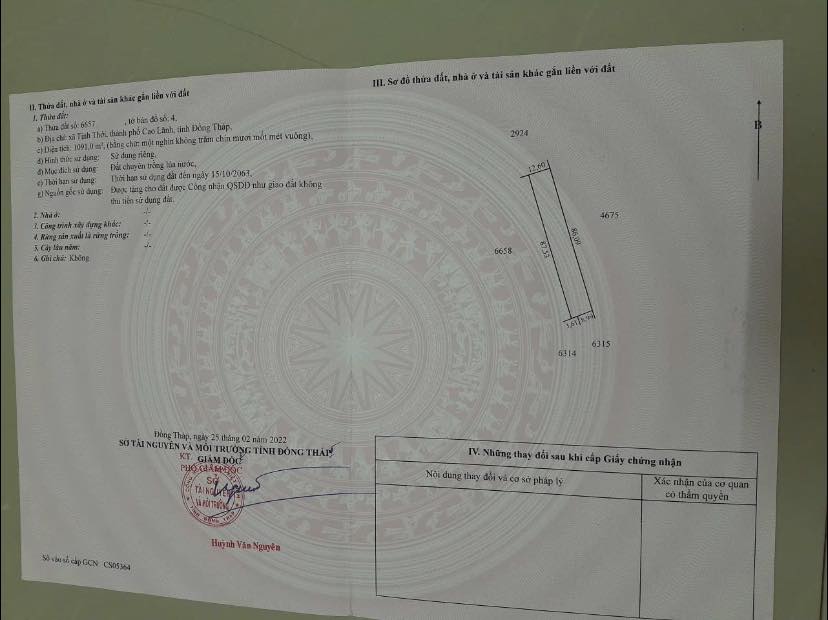 II. Thửa đất, nhà ở và tài sản khác gắn liền với đất
1. Thửa đất:
a) Thửa đất số: 6657 , tờ bản đồ số: 4,
b) Địa chỉ: xã Tịnh Thới, thành phố Cao Lãnh, tỉnh Đồng Tháp,
c) Diện tích: 1091,0 m², (bằng chữ: một nghìn không trăm chín mươi mốt mét vuông),
d) Hình thức sử dụng: Sử dụng riêng,
đ) Mục đích sử dụng: Đất chuyên trồng lúa nước,
e) Thời hạn sử dụng: Thời hạn sử dụng đất đến ngày 15/10/2063,
g) Nguồn gốc sử dụng: Được tặng cho đất được Công nhận QSDĐ như giao đất không
thu tiền sử dụng đất.
2. Nhà ở: -/-
3. Công trình xây dựng khác: -/-
4. Rừng sản xuất là rừng trồng: -/-
5. Cây lâu năm: -/-
6. Ghi chú: Không
Đồng Tháp, ngày 25 tháng 02 năm 2022
SỞ TÀI NGUYÊN VÀ MÔI TRƯỜNG TỈNH ĐỒNG THÁP
KT. GIÁM ĐỐC
PHÓ GIÁM ĐỐC
SỞ
TÀI NGUYÊN
VÀ MÔI TRƯỜNG
Huỳnh Văn Nguyên
Số vào sổ cấp GCN: CS05364
III. Sơ đồ thửa đất, nhà ở và tài sản khác gắn liền với đất
B
2924
12.60
4675
86.09
87.53
6658
3.61
8.99
6315
6314
IV. Những thay đổi sau khi cấp Giấy chứng nhận
Nội dung thay đổi và cơ sở pháp lý
Xác nhận của cơ quan
có thẩm quyền